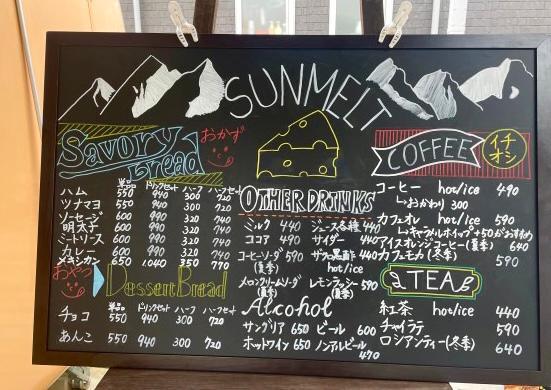 SUNMELT
Savory Bread おかず
単品 ドリンクセット ハーフ ハーフセット
ハム 550 940 300 720
ツナマヨ 550 940 300 720
ソーセージ 600 990 320 740
明太子 600 990 320 740
ミートソース 600 990 320 740
カレー 600 990 320 740
メキシカン 650 1,040 350 770
おやつ Dessert Bread
単品 ドリンクセット ハーフ ハーフセット
チョコ 550 940 300 720
あんこ 550 940 300 720
OTHER DRINKS
ミルク 440 ジュース各種 440
ココア 490 サイダー 440
コーヒーソーダ 590 ザクロ黒酢 440
(夏季) hot/ice
メロンクリームソーダ レモンスカッシュ 590
(夏季) (夏季)
Alcohol
サングリア 650 ビール 600
ホットワイン 650 ノンアルビール 470
COFFEE イチオシ
コーヒー hot/ice 490
↳おかわり 300
カフェオレ hot/ice 590
↳キャラメルホイップ+50がおすすめ
アイスオレンジコーヒー(夏季) 640
カフェモカ(冬季) 590
TEA
紅茶 hot/ice 440
チャイラテ 590
ロシアンティー(冬季) 640